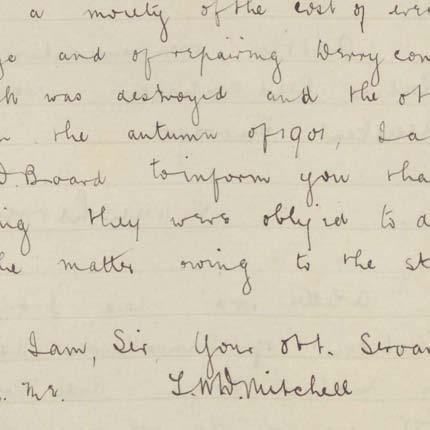 a moiety of the cost of
and of repairing Derry
was destroyed and the
the autumn of 1901, I
Board to inform you
they were oblijed to
the matter owing to the
I am, Sir, Your obt.
Mr. Mitchell